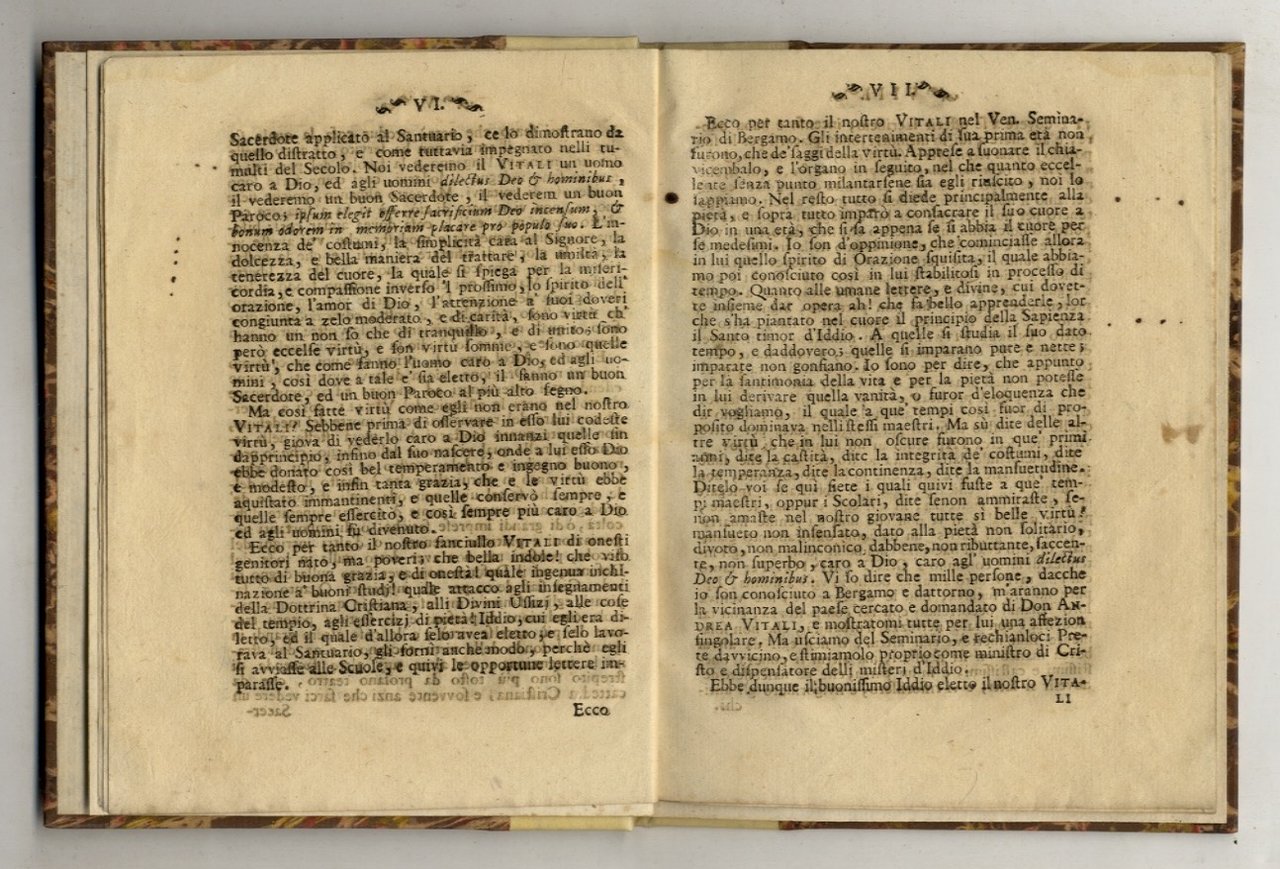 VI.
Sacerdote applicato al Santuario, ce lo dimoſtrano da
queſto diſtratto, e come tuttavia impegnato nelli tu-
multi del Secolo. Noi vederemo il VITALI un uomo
caro a Dio, ed agli uomini dilectus Deo & hominibus,
il vederemo un buon Sacerdote, il vederem un buon
Paroco; ipſum elegit offerre ſacrificium Deo incenſum, &
bonum odorem in memoriam placare pro populo ſuo. L'in-
nocenza de' coſtumi, la ſimplicità cara al Signore, la
dolcezza, e bella maniera del trattare, la umiltà, la
tenerezza del cuore, la quale ſi ſpiega per la miſeri-
cordia, e compaſſione inverſo 'l proſſimo, lo ſpirito dell'
orazione, l'amor di Dio, l'attenzione a' ſuoi doveri
congiunta a zelo moderato, e di carità, ſono virtù ch'
hanno un non ſo che di tranquillo, e di unito; ſono
però eccelſe virtù, e ſon virtù ſomme, e ſono quelle
virtù, che come fanno l'uomo caro a Dio, ed agli uo-
mini, così dove a tale e' ſia eletto, il fanno un buon
Sacerdote, ed un buon Paroco al più alto ſegno.
Ma così fatte virtù come egli non erano nel noſtro
VITALI? Sebbene prima di oſſervare in eſſo lui codeſte
virtù, giova di vederlo caro a Dio innanzi quelle ſin
da principio, infino dal ſuo naſcere, onde a lui eſſo Dio
ebbe donato così bel temperamento e ingegno buono,
e modeſto, e infin tanta grazia, che e le virtù ebbe
aquiſtato immantinenti, e quelle conſervò ſempre, e
quelle ſempre eſſercitò, e così ſempre più caro a Dio
ed agli uomini fu divenuto.
Ecco per tanto il noſtro fanciullo VITALI di oneſti
genitori nato, ma poveri; che bella indole! che viſo
tutto di buona grazia, e di oneſtà! quale ingenua inchi-
nazione a' buoni ſtudj! quale attacco agli inſegnamenti
della Dottrina Criſtiana, alli Divini Uffizj, alle coſe
del tempio, agli eſſercizj di pietà! Iddio, cui egli era di-
letto, ed il quale d'allora ſelo avea eletto, e ſelo lavo-
rava al Santuario, gli fornì anche modo, perchè egli
ſi avviaſſe alle Scuole, e quivi le opportune lettere im-
paraſſe.
Ecco
VII.
Ecco per tanto il noſtro VITALI nel Ven. Semina-
rio di Bergamo. Gli intertenimenti di ſua prima età non
furono, che de' ſaggi della virtù. Appreſe a ſuonare il chia-
vicembalo, e l'organo in ſeguito, nel che quanto eccel-
lente ſenza punto milantarſene ſia egli riuſcito, noi lo
ſappiamo. Nel reſto tutto ſi diede principalmente alla
pietà, e ſopra tutto imparò a conſacrare il ſuo cuore a
Dio in una età, che ſi ſa appena ſe ſi abbia il cuore per
ſe medeſimi. Io ſon d'oppinione, che cominciaſſe allora
in lui quello ſpirito di Orazione ſquiſita, il quale abbia-
mo poi conoſciuto così in lui ſtabilitoſi in proceſſo di
tempo. Quanto alle umane lettere, e divine, cui dovet-
te inſieme dar opera ah! che fa bello apprenderle, lor
che s'ha piantato nel cuore il principio della Sapienza
il Santo timor d'Iddio. A quelle ſi ſtudia il ſuo dato
tempo, e daddovero; quelle ſi imparano pure e nette;
imparate non gonfiano. Io ſono per dire, che appunto
per la ſantimonia della vita e per la pietà non poteſſe
in lui derivare quella vanità, o furor d'eloquenza che
dir vogliamo, il quale a que' tempi così fuor di pro-
poſito dominava nelli ſteſſi maeſtri. Ma sù dite delle al-
tre virtù che in lui non oſcure furono in que' primi
anni, dite la caſtità, dite la integrità de' coſtumi, dite
la temperanza, dite la continenza, dite la manſuetudine.
Ditelo voi ſe qui ſiete i quali quivi fuſte a que' tem-
pi maeſtri, oppur i Scolari, dite ſenon ammiraſte, ſe-
non amaſte nel noſtro giovane tutte sì belle virtù?
manſueto non inſenſato, dato alla pietà non ſolitario,
divoto, non malinconico, dabbene, non ributtante, faccen-
te, non ſuperbo, caro a Dio, caro agl' uomini dilectus
Deo & hominibus. Vi ſo dire che mille perſone, dacche
io ſon conoſciuto a Bergamo e dattorno, m'aranno per
la vicinanza del paeſe cercato e domandato di Don AN-
DREA VITALI, e moſtratomi tutte per lui una affezion
ſingolare. Ma uſciamo del Seminario, e rechianloci Pre-
te davvicino, e ſtimiamolo proprio come miniſtro di Cri-
ſto e diſpenſatore delli miſteri d'Iddio.
Ebbe dunque il buoniſſimo Iddio eletto il noſtro VITA-
LI